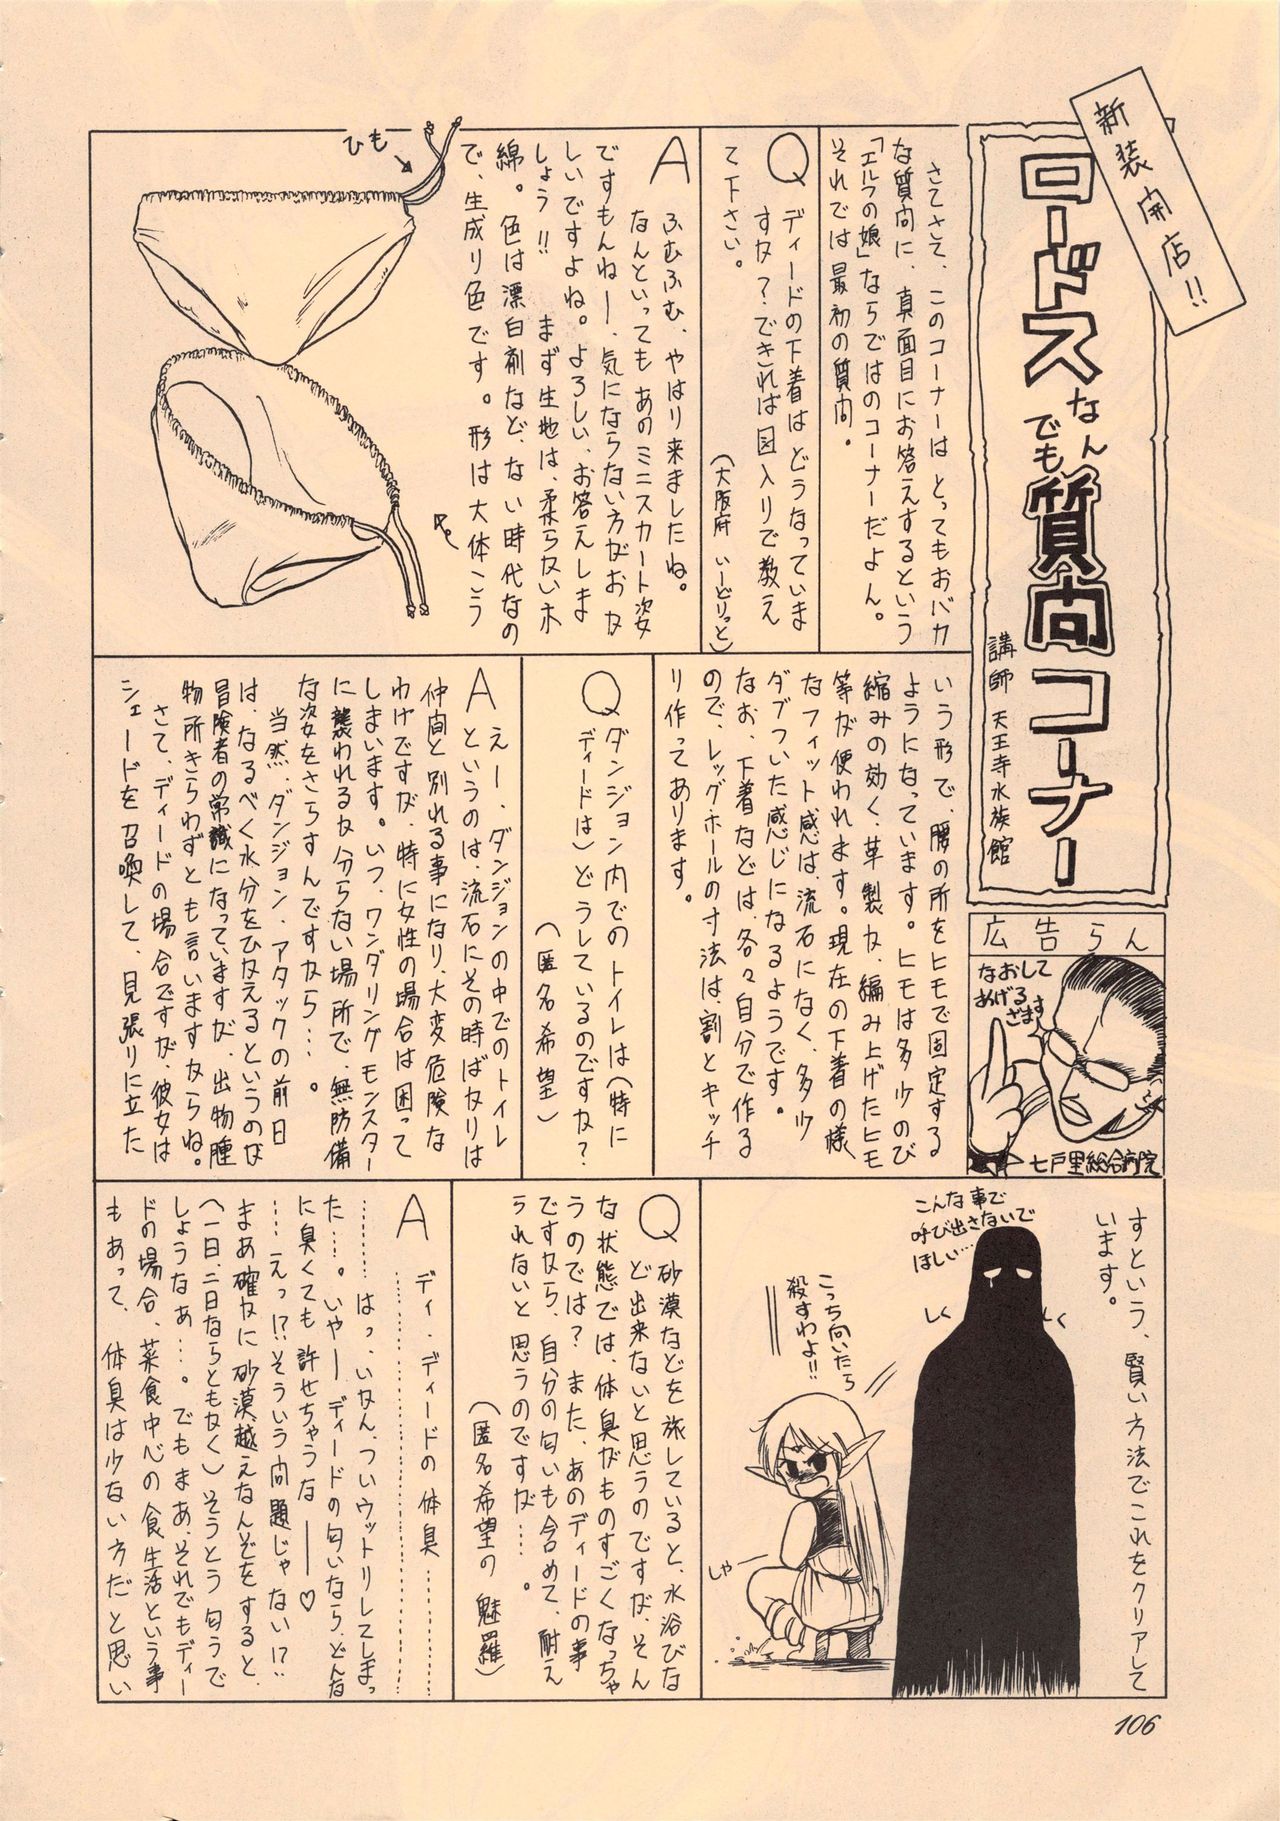 新装開店!!
ロードスなんでも質問コーナー
講師 天王寺水族館
さてさて、このコーナーはとってもおバカ
な質問に、真面目にお答えするという
「エルフの娘」ならではのコーナーだよん。
それでは最初の質問。
Q ディードの下着はどうなっていま
すか?できれば図入りで教え
て下さい。
(大阪府 いーどりっと)
A ふむふむ、やはり来ましたね。
なんといってもあのミニスカート姿
ですもんねー、気にならない方がおか
しいですよね。よろしい、お答えしま
しょう!! まず生地は、柔らかいホ
綿。色は漂白剤など、ない時代なの
で、生成り色です。形は大体こう
ひも
いう形で、腰の所をヒモで固定する
ようになっています。ヒモは多少のび
縮みの効く、革製か、編み上げたヒモ
等が使われます。現在の下着の様
なフィット感は、流石になく、多少
ダブついた感じになるようです。
なお、下着などは、各々自分で作る
ので、レッグホールの寸法は、割とキッチ
リ作ってあります。
Q ダンジョン内でのトイレは(特に
ディードは)どうしているのですか?
(匿名希望)
A えー、ダンジョンの中でのトイレ
というのは、流石にその時ばかりは
仲間と別れる事になり、大変危険な
わけですが、特に女性の場合は困って
しまいます。いつ、ワンダリングモンスター
に襲われるか分らない場所で、無防備
な姿をさらすんですから…。
当然、ダンジョン・アタックの前日
は、なるべく水分をひかえるというのが
冒険者の常識になっていますが、出物腫
物所きらわずとも言いますからね。
さて、ディードの場合ですが、彼女は
シェードを召喚して、見張りに立た
広告らん
なおして
あげる
ざます
七戸里総合病院
すという、賢い方法でこれをクリアして
います。
こんな事で
呼び出さないで
ほしい…
しく
しく
こっち向いたら
殺すわよ!!
しゃー
Q 砂漠などを旅していると、水浴びな
ど出来ないと思うのですが、そん
な状態では、体臭がものすごくなっちゃ
うのでは?また、あのディードの事
ですから、自分の匂いも含めて、耐え
られないと思うのですが…。
(匿名希望の魅羅)
A ディ・ディードの体臭……
……はっ、いかん、ついウットリしてしまっ
た…。いやーディードの匂いなら、どんな
に臭くても許せちゃうな――♡
……えっ!?そういう問題じゃない!?
まあ確かに砂漠越えなんぞをすると、
(一日、二日ならともかく)そうとう匂うで
しょうなぁ…。でもまあ、それでもディー
ドの場合、菜食中心の食生活という事
もあって、体臭は少ない方だと思い
106